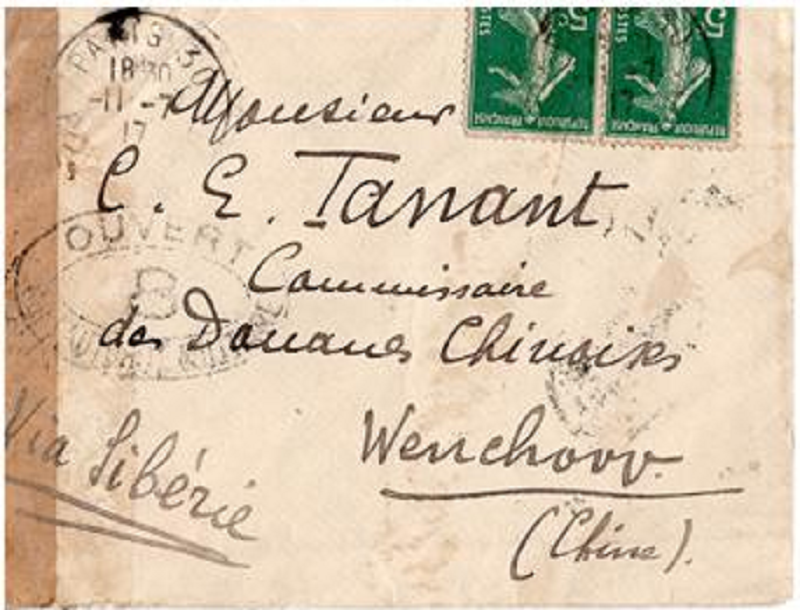 PARIS
18 30
-11 -7
17
5c
POSTES
REPUBLIQUE FRANÇAISE
5c
POSTES
REPUBLIQUE FRANÇAISE
Monsieur
C. E. Tanant
OUVERT
Commissaire
des Douanes Chinoises
Via Sibérie
Wenchow
(Chine).